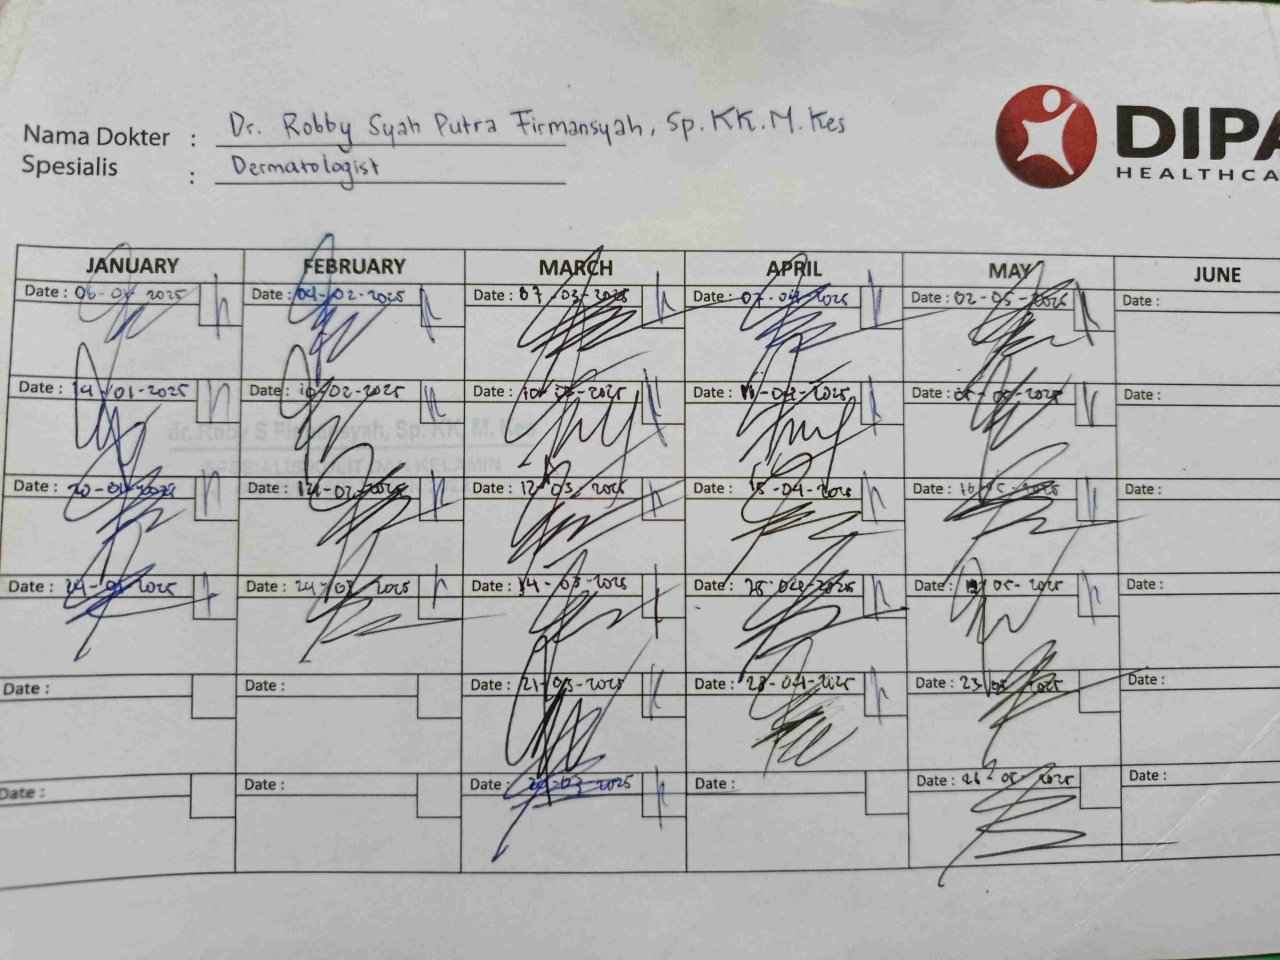 Nama Dokter : Dr. Robby Syah Putra Firmansyah, Sp.KK.M.Kes
Spesialis : Dermatologist
DIPA
HEALTHCA
JANUARY FEBRUARY MARCH APRIL MAY JUNE
Date : 06-01-2025 Date : 04-02-2025 Date : 07-03-2025 Date : 07-04-2025 Date : 02-05-2025 Date :
Date : 14-01-2025 Date : 10-02-2025 Date : 10-03-2025 Date : 11-04-2025 Date : Date :
Date : 20-01-2025 Date : Date : 12-03-2025 Date : 15-04-2025 Date : 16-05-2025 Date :
Date : 24-01-2025 Date : Date : 14-03-2025 Date : 25-04-2025 Date : 19-05-2025 Date :
Date : Date : Date : 21-03-2025 Date : 28-04-2025 Date : 23-05-2025 Date :
Date : Date : Date : Date : Date : 26-05-2025 Date :